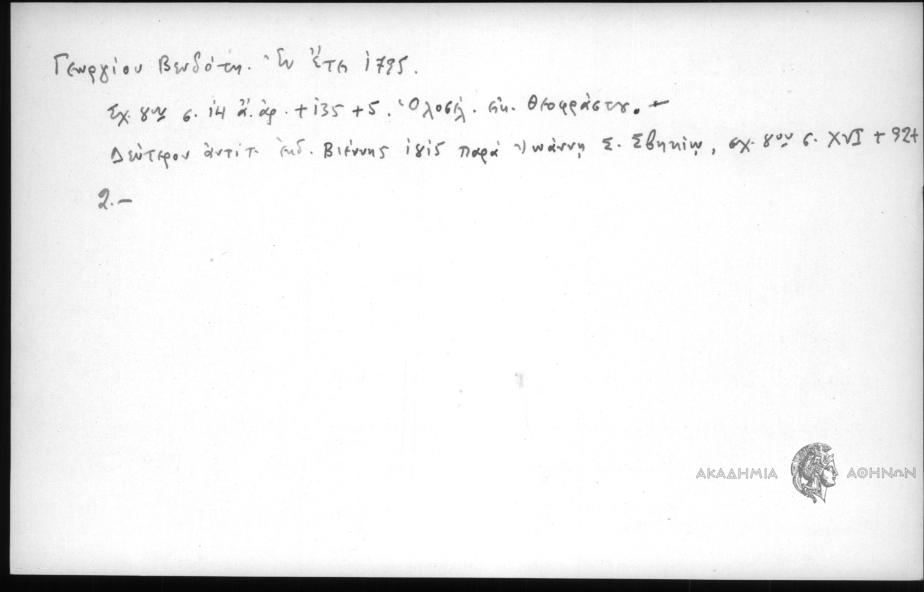 Γεωργίου Βενδότη. Ἐν ἔτει 1795.
Σχ. 8ον σ. 14 ἄ. ἀρ. + 135 + 5. Ὁλοσέλ. εἰκ. Θεοφράστου. –
Δεύτερον ἀντίτ. ἐκδ. Βιέννης 1815 παρὰ Ἰωάννῃ Σ. Σβηκίῳ, σχ. 8ον σ. XVI + 92 +
2. –
ΑΚΑΔΗΜΙΑ ΑΘΗΝΩΝ